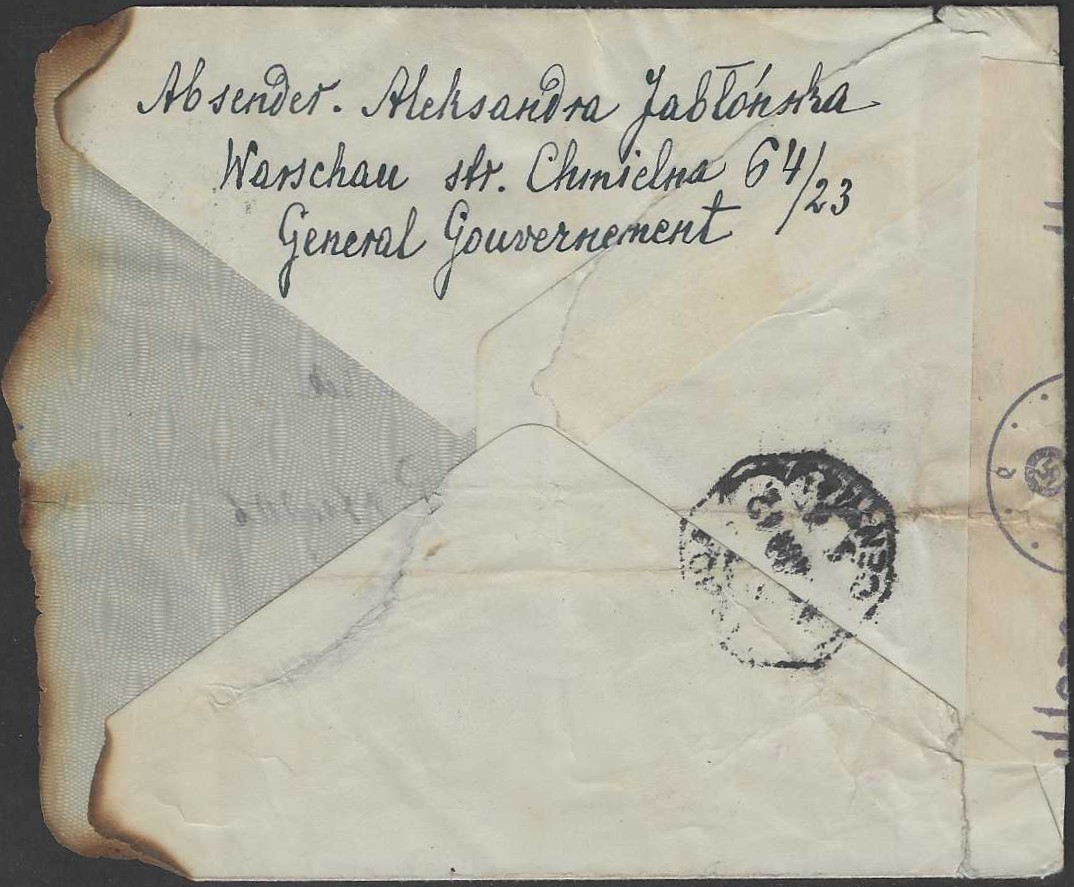 Absender. Aleksandra Jabłónska
Warschau str. Chmielna 64/23
General Gouvernement